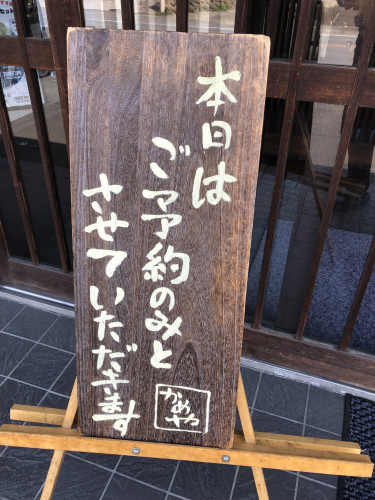 本日は
ご予約のみと
させていただきます